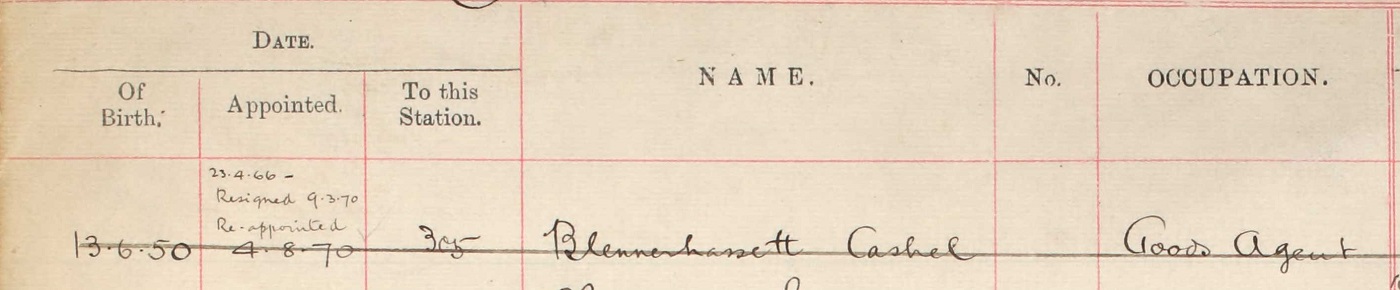 DATE.
Of Birth; Appointed. To this Station. NAME. No. OCCUPATION.
23.4.66 –
Resigned 9.3.70
Re-appointed
13.6.50 4.8.70 305 Blennerhassett Cashel Goods Agent